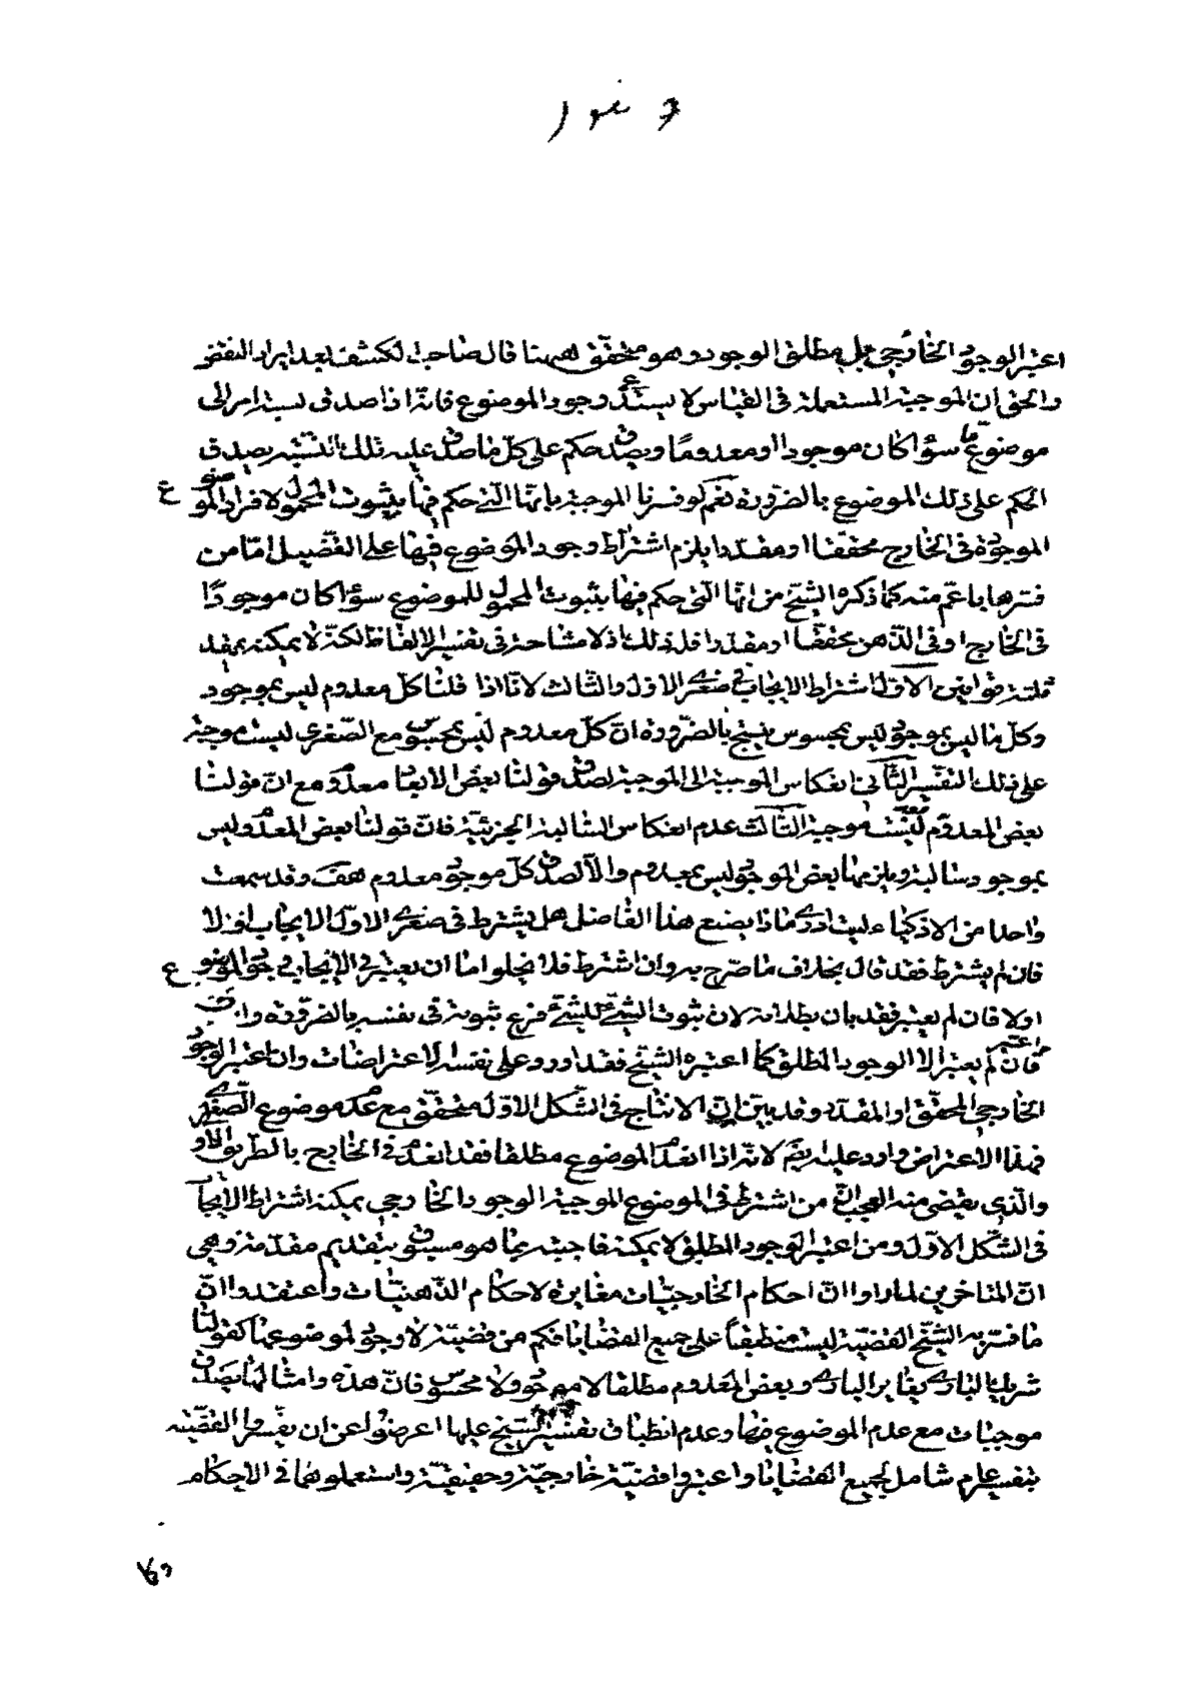 اعتبر الوجود الخارجي بل مطلق الوجود وهو متحقق ههنا قال صاحب الكشف بعد ايراد النقض
والحق ان الموجبة المستعملة فى القياس لا يستدعى وجود الموضوع فانه اذا صدق نسبة امر الى
موضوع ما سواء كان موجودا او معدوما ويصدق حكم على كل ما صدق عليه تلك النسبة يصدق
الحكم على ذلك الموضوع بالضرورة نعم لو فسرنا الموجبة بانها التى حكم فيها بثبوت المحمول لافراد الموضوع
الموجودة فى الخارج محققا او مقدرا يلزم اشتراط وجود الموضوع فيها على التفصيل اما من
فسرها باعم منه كما ذكره الشيخ من انها التى حكم فيها بثبوت المحمول للموضوع سواء كان موجودا
فى الخارج او فى الذهن محققا او مقدرا فله ذلك اذ لا مشاحة فى تفسير الالفاظ لكنه لا يمكنه
قوانين الاول اشتراط الايجاب فى صغرى الاول والثالث لانا اذا قلنا كل معدوم ليس بموجود
وكل ما ليس بموجود ليس بمحسوس ينتج بالضرورة ان كل معدوم ليس بمحسوس مع الصغرى ليست موجبة
على ذلك التفسير الثانى انعكاس الموجبة الى الموجبة لصدق قولنا بعض معدوم مع ان قولنا
بعض المعدوم ليست موجبة الثالث عدم انعكاس السالبة الجزئية فان قولنا بعض المعدوم ليس
بموجود سالبة ويلزمها بعض الموجود ليس بمعدوم والا لصدق كل موجود معدوم هف وقد سمعت
واحدا من الاذكياء ليت ادرى ماذا يصنع هذا الفاضل هل يشترط فى صغرى الاول الايجاب او لا
فان لم يشترط فقد قال بخلاف ما صرح به وان اشترط فلا يخلو اما ان يعتبر فى الايجاب وجود الموضوع
او لا فان لم يعتبر فقد بان بطلانه لان ثبوت الشئ للشئ فرع ثبوته فى نفسه بالضرورة وان اعتبر
فان لم يعتبر الا الوجود المطلق كما اعتبره الشيخ فقد اورد على نفسه الاعتراضات وان اعتبر الوجود
الخارجى المحقق او المقدر وقد بين ان الانتاج فى الشكل الاول متحقق مع عدم موضوع الصغرى
فهذا الاعتراض وارد عليه لانه اذا انعدم الموضوع مطلقا فقد انعدم فى الخارج بالطريق الاولى
والذى يقضى منه العجب ان من اشترط فى الموضوع الموجبة الوجود الخارجى يمكنه اشتراط الايجاب
فى الشكل الاول ومن اعتبر الوجود المطلق لا يمكنه فاجيبه بما هو مسبوق بتقديم مقدمة وهى
ان المتاخرين لما راوا ان احكام الخارجيات مغايرة لاحكام الذهنيات واعتقدوا ان
ما فسر به الشيخ القضية ليست منطبقا على جميع القضايا فكم من قضية لا وجود لموضوعها كقولنا
شريك البارى يغاير البارى وبعض المعدوم مطلقا لا موجود ولا محسوس فان هذه وامثالها يصدق
موجبات مع عدم الموضوع فيها وعدم انطباق تفسير الشيخ عليها اعرضوا عن ان يفسروا القضية
بتفسير عام شامل لجميع القضايا واعتبروا قضية خارجية وحقيقية واستعملوهما فى الاحكام